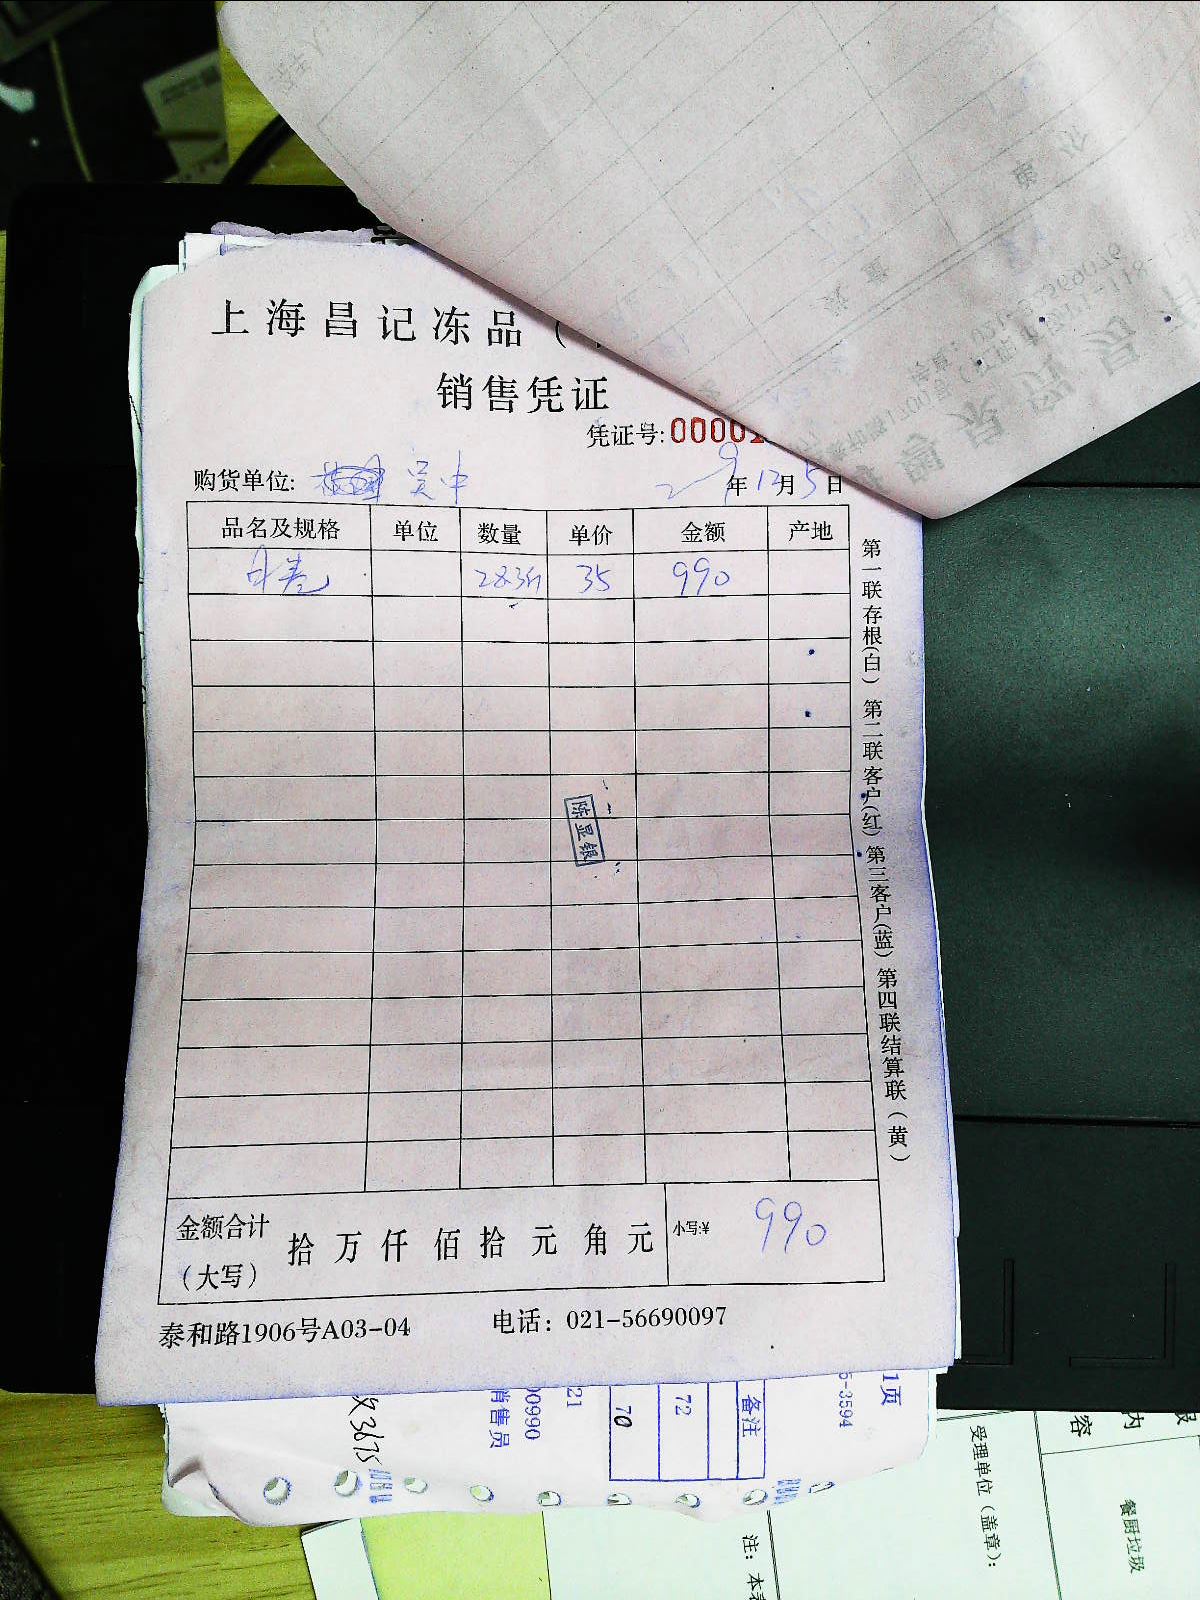 上海昌记冻品（
销售凭证
凭证号:00001
购货单位: 吴中 29年12月5日
品名及规格 单位 数量 单价 金额 产地
月卷 28.3斤 35 990
陈显银
金额合计（大写） 拾 万 仟 佰 拾 元 角 元 小写:¥ 990
泰和路1906号A03-04 电话：021-56690097
第一联存根(白) 第二联客户(红) 第三客户(蓝) 第四联结算联(黄)
1页
5-3594
备注
72
70
21
00990
销售员
3675
内容
受理单位（盖章）：
餐厨垃圾
注：本表